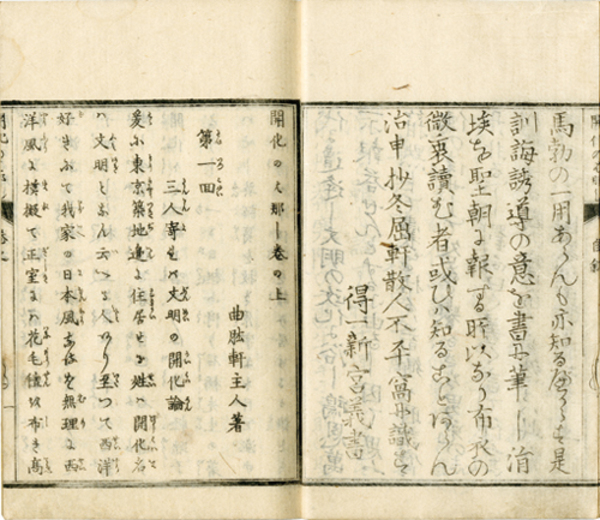 馬勃の一用あらんも亦知る可らず是
訓誨誘導の意を書し筆し涓
埃を聖朝に報する所以なり布衣の
微衷讀む者或ひハ知ることあらん
治申抄冬屈軒散人
得一新宮義書
開化のはなし巻の上
曲肱軒主人著
第一回
三人寄れバ文明の開化論
爰に東京築地邊に住居せる姓ハ開化名
ハ文明となん云へる人ありけり至つて西洋
好きにて我家の日本風なるを無理に西
洋風に模擬て正室にハ花毛氈を布き高